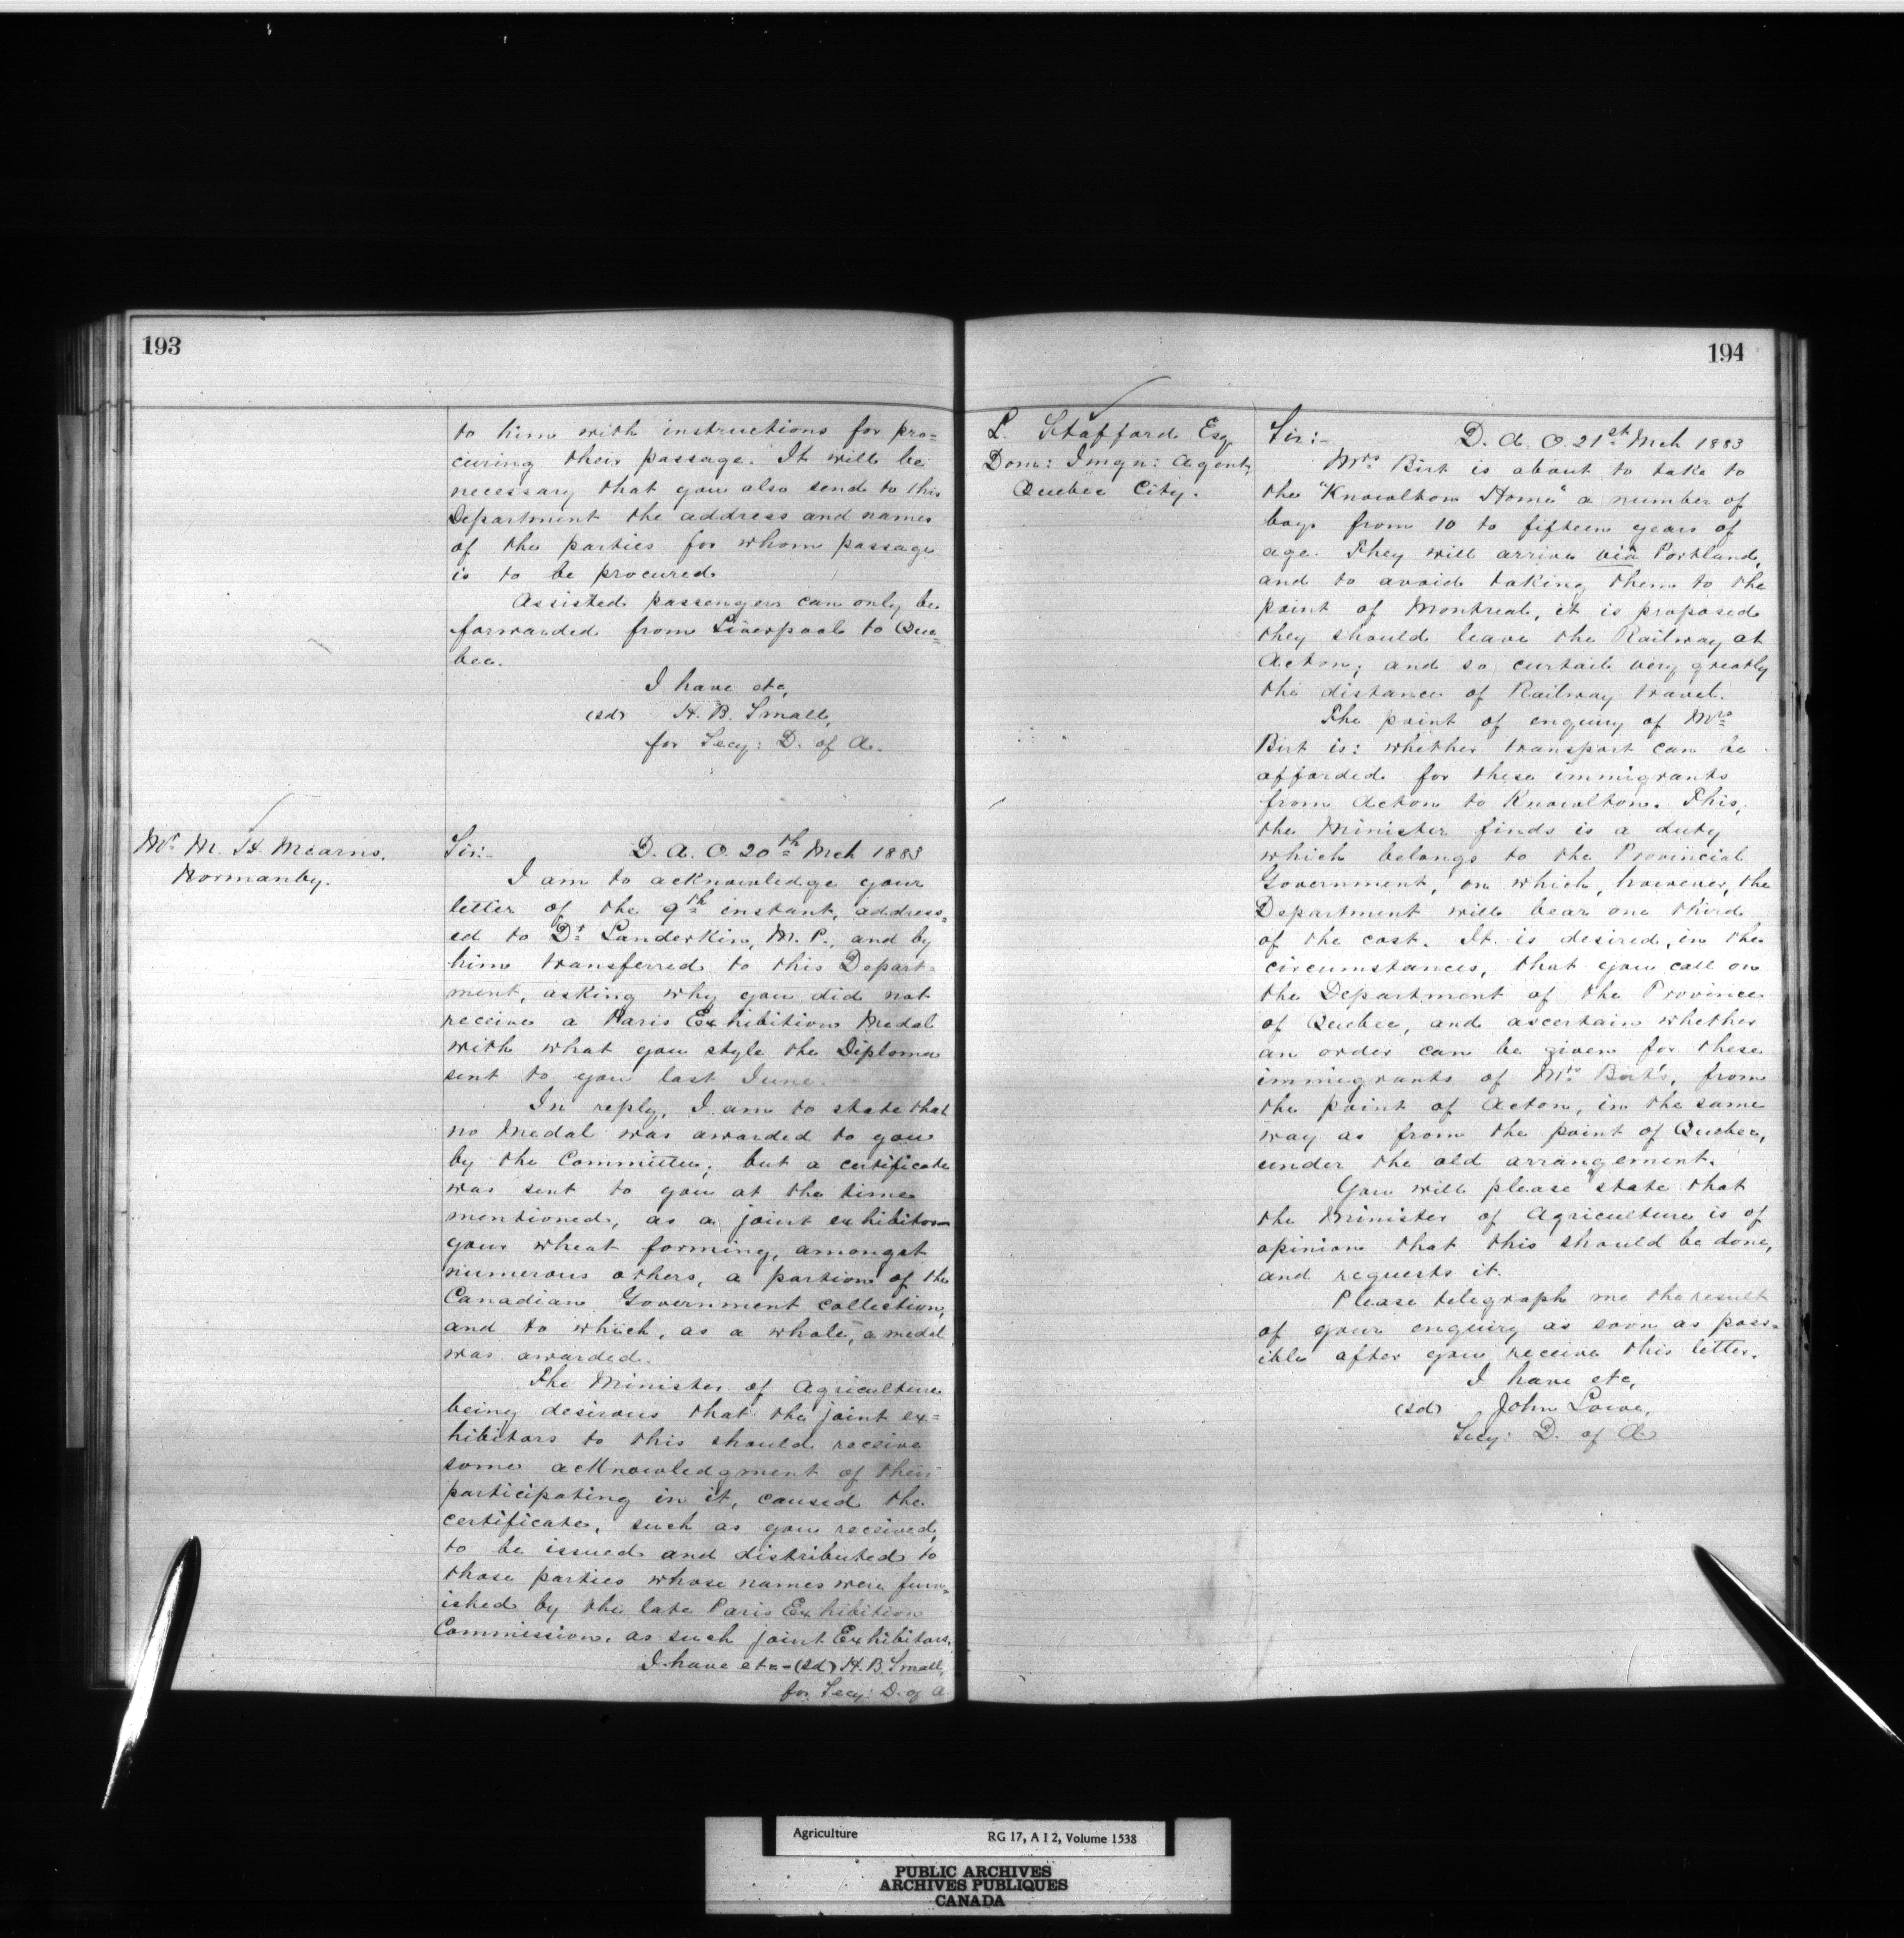 193
to him with instructions for pro=
curing their passage. It will be
necessary that you also send to this
Department the address and names
of the parties for whom passage
is to be procured
Assisted passengers can only be
forwarded from Liverpool to Que=
bec.
I have etc,
(sd) H. B. Small,
for Secy: D. of A.
Mr. M. H. Mearns.
Normanby.
Sir:- D. A. O. 20th Mch 1883
I am to acknowledge your
letter of the 9th instant, address=
ed to Dr. Landerkin, M. P., and by
him transferred to this Depart=
ment, asking why you did not
receive a Paris Exhibition Medal
with what you style the Diploma
sent to you last June.
In reply, I am to state that
no Medal was awarded to you
by the Committee; but a certificate
was sent to you at the time
mentioned, as a joint exhibitor
your wheat forming, amongst
numerous others, a portion of the
Canadian Government collection,
and to which, as a whole, a medal
was awarded.
The Minister of Agriculture
being desirous that the joint ex=
hibitors to this should receive
some acknowledgment of their
participating in it, caused the
certificate, such as you received,
to be issued and distributed to
those parties whose names were furn=
ished by the late Paris Exhibition
Commission, as such joint Exhibitors.
I have etc-(sd) H. B. Small,
for Secy: D. of A
194
L. Stafford Esq.
Dom: Imgn: Agent,
Quebec City.
Sir:- D. A. O. 21st Mch 1883
Mrs. Birt is about to take to
the "Knowlton Home" a number of
boys from 10 to fifteen years of
age. They will arrive via Portland,
and to avoid taking them to the
point of Montreal, it is proposed
they should leave the Railway at
Acton; and so curtail very greatly
the distance of Railway travel.
The point of enquiry of Mrs.
Birt is: whether transport can be
afforded for these immigrants
from Acton to Knowlton. This,
the Minister finds is a duty
which belongs to the Provincial
Government, on which, however, the
Department will bear one third
of the cost. It is desired, in the
circumstances, that you call on
the Department of the Province
of Quebec, and ascertain whether
an order can be given for these
immigrants of Mrs. Birt's, from
the point of Acton, in the same
way as from the point of Quebec,
under the old arrangement.
You will please state that
the Minister of Agriculture is of
opinion that this should be done,
and requests it.
Please telegraph me the result
of your enquiry as soon as poss=
ible after you receive this letter.
I have etc,
(sd) John Lowe,
Secy: D. of A.
Agriculture RG 17, A I 2, Volume 1538
PUBLIC ARCHIVES
ARCHIVES PUBLIQUES
CANADA